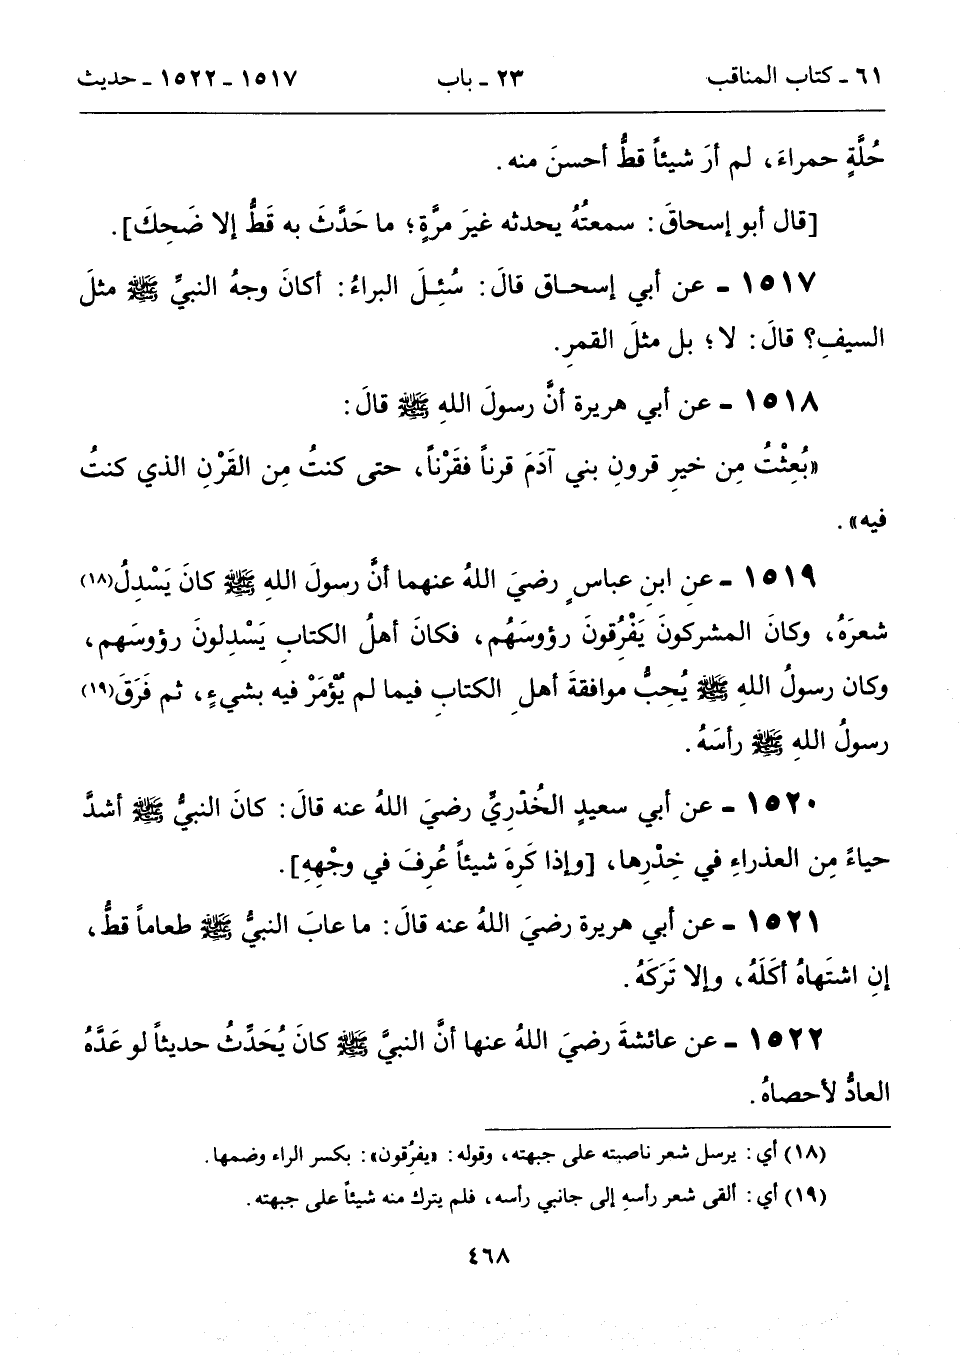 ٦١ ـ كتاب المناقب ٢٣ ـ باب ١٥١٧ ـ ١٥٢٢ ـ حديث
حُلَّةٍ حمراءَ، لم أرَ شيئاً قطُّ أحسنَ منه .
[قال أبو إسحاقَ: سمعتُهُ يحدثه غيرَ مرَّةٍ؛ ما حَدَّثَ به قَطُّ إلا ضَحِكَ].
١٥١٧ ـ عن أبي إسحـاق قالَ: سُئِـلَ البراءُ: أكانَ وجهُ النبيِّ ﷺ مثلَ
السيفِ؟ قالَ: لا؛ بل مثلَ القمرِ.
١٥١٨ ـ عن أبي هريرة أنَّ رسولَ اللهِ ﷺ قالَ:
«بُعِثْتُ مِن خيرِ قرونِ بني آدَمَ قرناً فقَرْناً، حتى كنتُ مِن القَرْنِ الذي كنتُ
فيه».
١٥١٩ ـ عنِ ابنِ عباسٍ رضيَ اللهُ عنهما أنَّ رسولَ اللهِ ﷺ كانَ يَسْدِلُ(١٨)
شعرَهُ، وكانَ المشركونَ يَفْرُِقونَ رؤوسَهُم، فكانَ أهلُ الكتابِ يَسْدِلونَ رؤوسَهم،
وكان رسولُ اللهِ ﷺ يُحِبُّ موافقةَ أهلِ الكتابِ فيما لم يُؤمَرْ فيه بشيءٍ، ثم فَرَقَ(١٩)
رسولُ اللهِ ﷺ رأسَهُ.
١٥٢٠ ـ عن أبي سعيدٍ الخُدْرِيِّ رضيَ اللهُ عنه قالَ: كانَ النبيُّ ﷺ أشدَّ
حياءً مِن العذراءِ في خِدْرِها، [وإذا كَرِهَ شيئاً عُرِفَ في وجْهِهِ].
١٥٢١ ـ عن أبي هريرة رضيَ اللهُ عنه قالَ: ما عابَ النبيُّ ﷺ طعاماً قطُّ،
إنِ اشتَهاهُ أكَلَهُ، وإلا تَرَكَهُ.
١٥٢٢ ـ عن عائشةَ رضيَ اللهُ عنها أنَّ النبيَّ ﷺ كانَ يُحَدِّثُ حديثاً لو عَدَّهُ
العادُّ لأحصاهُ.
(١٨) أي: يرسل شعر ناصيته على جبهته، وقوله: «يفرُِقون»: بكسر الراء وضمها.
(١٩) أي: ألقى شعر رأسهِ إلى جانبي رأسه، فلم يترك منه شيئاً على جبهته.
٤٦٨